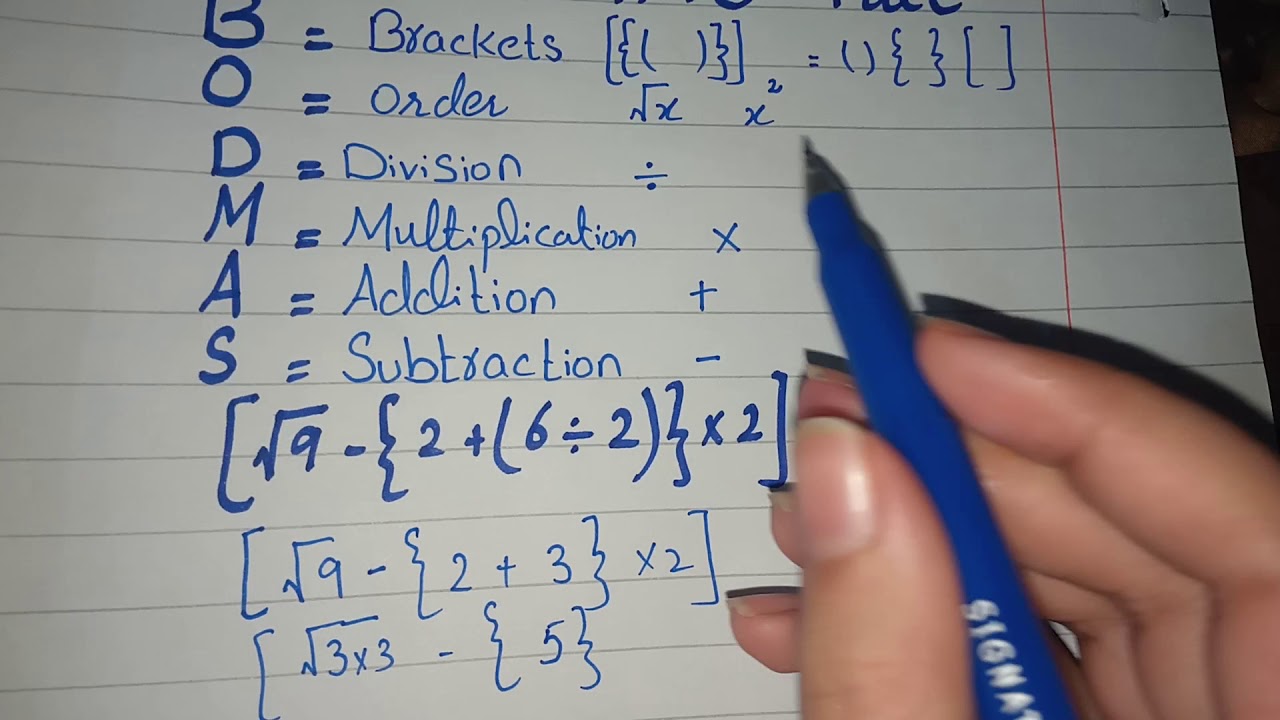 B = Brackets [{( )}] = () { } [ ]
O = Order √x x²
D = Division ÷
M = Multiplication ×
A = Addition +
S = Subtraction -
[√9 - {2 + (6 ÷ 2)} × 2]
[√9 - {2 + 3} × 2]
[√3×3 - {5}